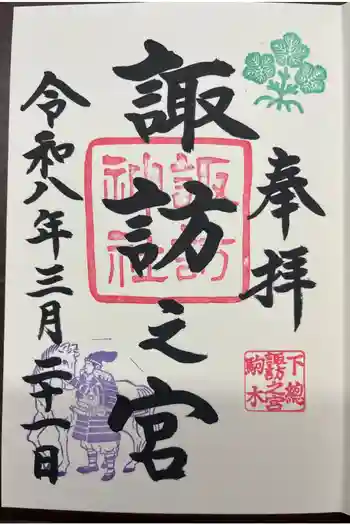 奉拝
下總
諏訪之宮
駒木
諏訪之宮
諏訪
神社
令和八年三月二十一日